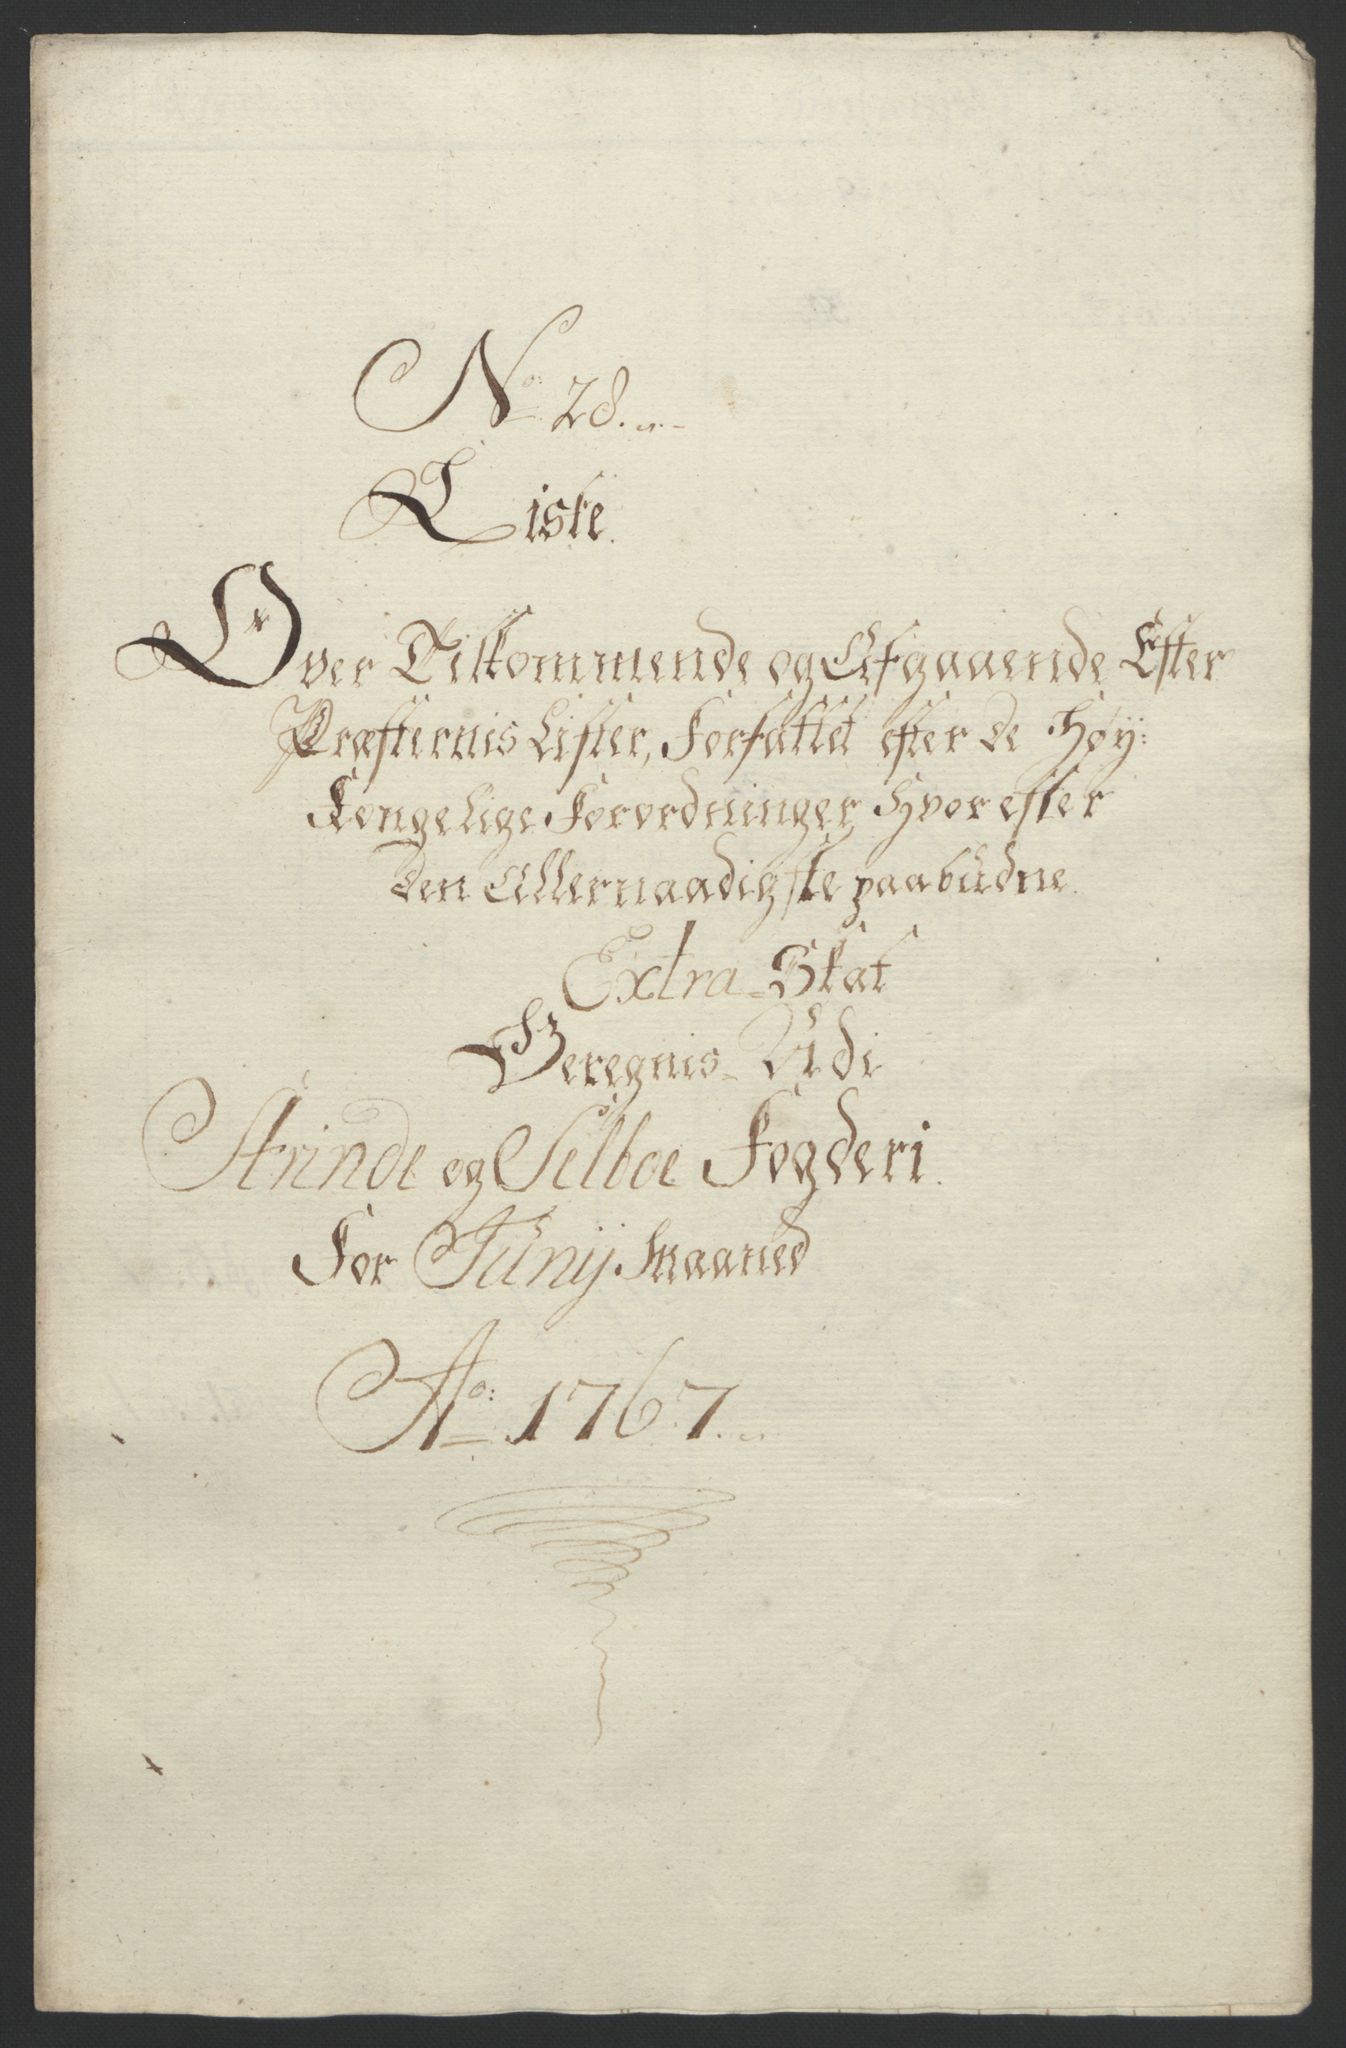 No: 28.
Liste.
Over Tilkommende og Afgaaende Efter
Præsternis Lister, Forfattet efter de Høy:
Kongelige Forordninger, Hvor efter
den Allernaadigste paabudne
Extra-Skat
Beregnis Udi
Strinde og Selboe Fogderi.
For Junij Maaned
Ao: 1767.